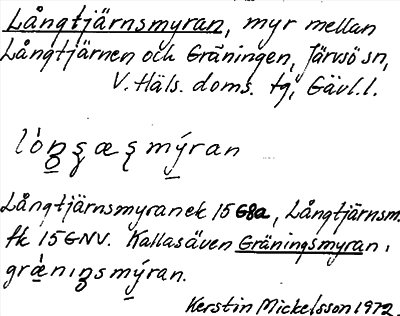 Långtjärnsmyran, myr mellan
Långtjärnen och Gräningen, Järvsö sn,
V. Häls. doms. tg, Gävl.l.
Långtjärnsmyran ek 15 G8a, Långtjärnsm.
tk 15 G NV. Kallas även Gräningsmyran,
Kerstin Mickelsson 1972.